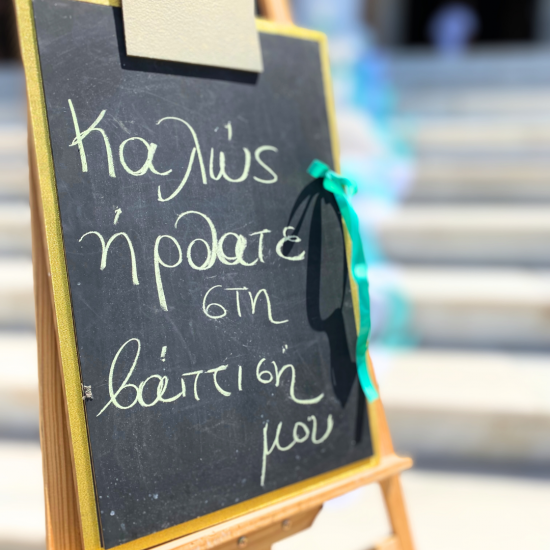 Καλώς
ήρθατε
στη
βάπτισή
μου